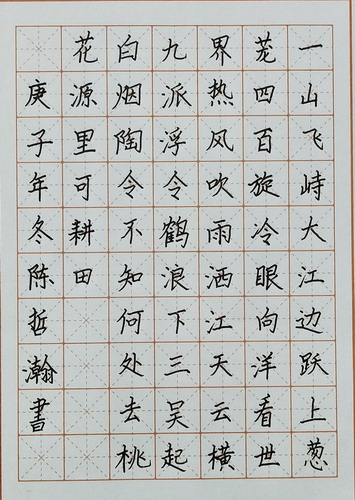 一山飞峙大江边跃上葱
茏四百旋冷眼向洋看世
界热风吹雨洒江天云横
九派浮令鹤浪下三吴起
白烟陶令不知何处去桃
花源里可耕田
庚子年冬陈哲瀚書